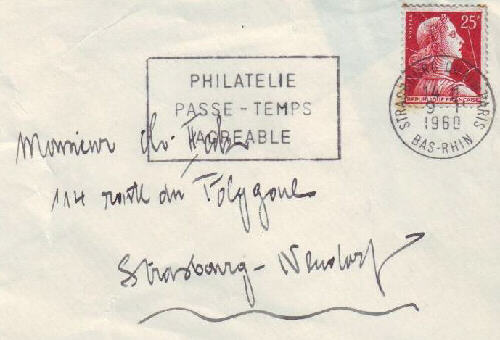 25F
PHILATELIE
PASSE-TEMPS
AGREABLE
STRASBOURG
9-1
1960
BAS-RHIN
Monsieur Ch.
114 route du Polygone
Strasbourg-Neudorf